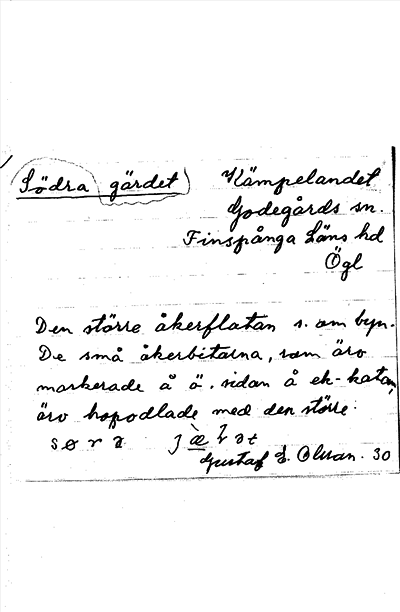 Södra gärdet
Kämpelandet
Godegårds sn.
Finspånga Läns hd
Ögl
Den större åkerflatan s. om byn.
De små åkerbitarna, som äro
markerade å ö. sidan å ek-kartan,
äro hopodlade med den större.
Gustaf E. Olsson. 30